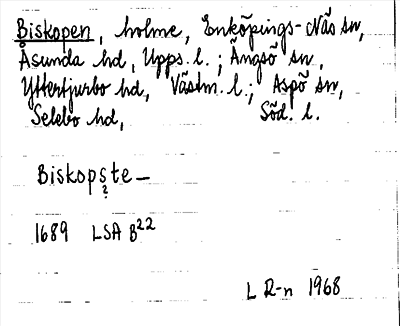 Biskopen, holme, Enköpings-Näs sn,
Åsunda hd, Upps. l.; Ängsö sn,
Yttertjurbo hd, Västm. l.; Aspö sn,
Selebo hd, Söd. l.
Biskopste—
?
1689 LSA B22
L R-n 1968